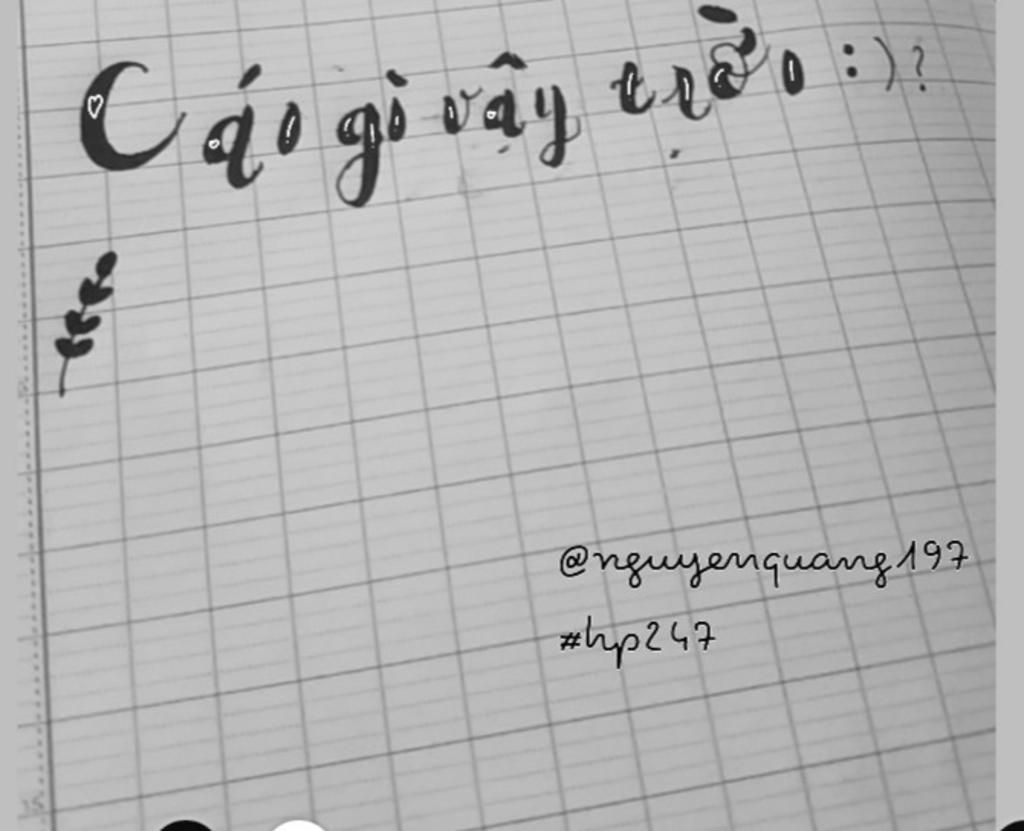 Cái gì vậy trời :)?
@nguyenquang197
#hp247